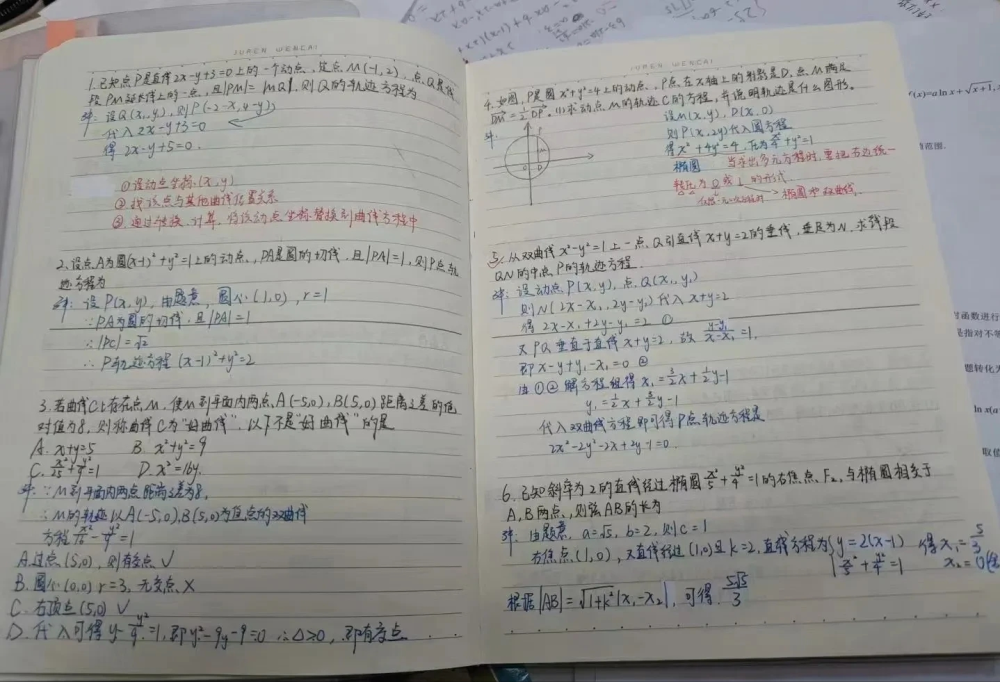 SUPER WENCAI
1.已知点P是直线2x-y+3=0上的一个动点,定点M(-1,2),点Q是线
段PM延长线上的一点,且|PM|=|MQ|,则Q的轨迹方程为
解:设Q(x,y),则P(-2-x,4-y)
代入2x-y+3=0
得2x-y+5=0.
①设动点坐标(x,y)
②找该点与其他曲线位置关系
③通过转换、计算,将该动点坐标替换到曲线方程中
2.设点A为圆(x-1)²+y²=1上的动点,PA是圆的切线,且|PA|=1,则P点轨
迹方程为
解:设P(x,y),由题意,圆心(1,0),r=1
∵PA为圆的切线,且|PA|=1
∴|PC|=√2
∴P轨迹方程(x-1)²+y²=2
3.若曲线C上存在点M,使M到平面内两点A(-5,0),B(5,0)距离之差的绝
对值为8,则称曲线C为"好曲线",以下不是"好曲线"的是
A. x+y=5 B. x²+y²=9
C. x²/25+y²/9=1 D. x²=16y.
解:∵M到平面内两点距离之差为8,
∴M的轨迹以A(-5,0),B(5,0)为焦点的双曲线
方程x²/16-y²/9=1
A.过点(5,0),则有交点√
B.圆心(0,0) r=3,无交点 ×
C.右顶点(5,0) √
D.代入可得y-y²/9=1,即y²-9y+9=0 ∴Δ>0,即有交点.
SUPER WENCAI
4.如图,P是圆x²+y²=4上的动点,P点在x轴上的射影是D,点M满足
DM=1/2DP.(1)求动点M的轨迹C的方程,并说明轨迹是什么图形.
解:
设M(x,y),D(x,0)
则P(x,2y)代入圆方程
得x²+4y²=4,化为x²/4+y²=1
椭圆 当求出多元方程时,要把右边统一
转化为0或1的形式
椭圆或双曲线.
5.从双曲线x²-y²=1上一点Q引直线x+y=2的垂线,垂足为N.求线段
QN的中点P的轨迹方程.
解:设动点P(x,y),点Q(x₁,y₁)
则N(2x-x₁,2y-y₁)代入x+y=2
得2x-x₁+2y-y₁=2 ①
又PQ垂直于直线x+y=2,故(y-y₁)/(x-x₁)=1,
即x-y+y₁-x₁=0 ②
由①②解方程组得x₁=3/2x+1/2y-1
y₁=1/2x+3/2y-1
代入双曲线方程即可得P点轨迹方程是
2x²-2y²-2x+2y-1=0.
6.已知斜率为2的直线经过椭圆x²/5+y²/4=1的右焦点F₂,与椭圆相交于
A,B两点,则弦AB的长为
解:由题意,a=√5,b=2,则c=1
右焦点(1,0),又直线经过(1,0)且k=2,直线方程为{y=2(x-1) 得x₁=5/3
x²/5+y²/4=1 x₂=0
根据|AB|=√1+k²|x₁-x₂|,可得5√5/3